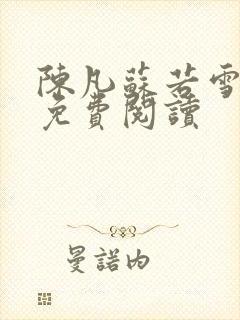 陳凡蘇若雪
免費閱讀
曼諾內